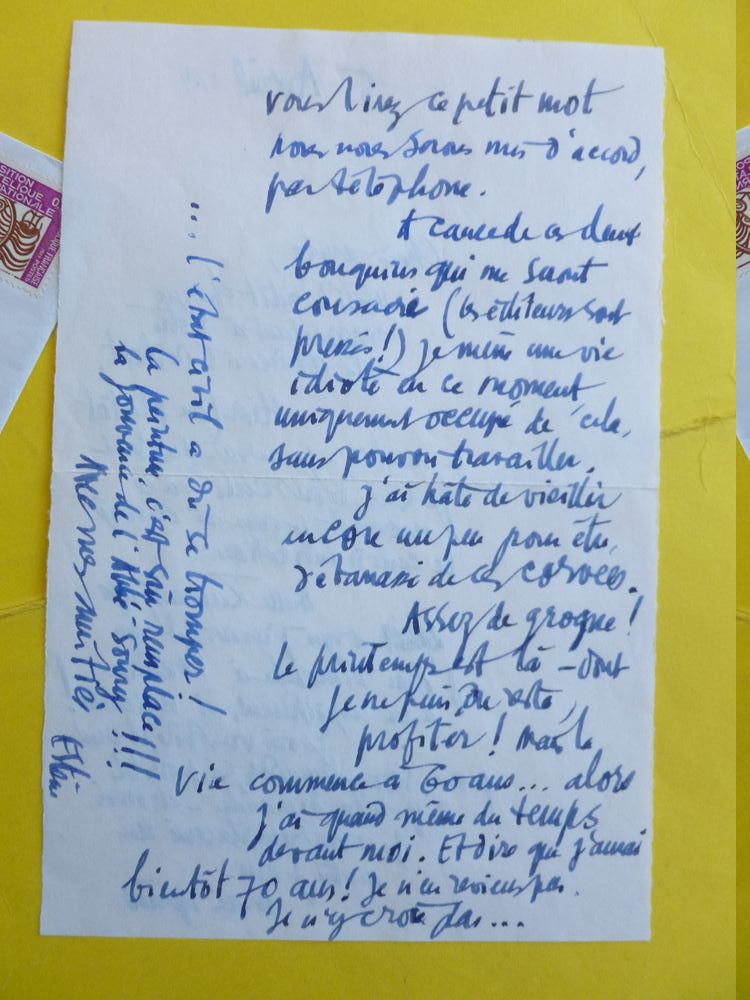 vous lirez ce petit mot
nous nous serons mis d'accord,
par téléphone.
A cause de ces deux
bouquins qui me seront
consacrés (les éditeurs sont
pressés!) je mène une vie
idiote en ce moment,
uniquement occupé de cela,
sans pouvoir travailler.
j'ai hâte de vieillir
encore un peu pour être
débarrassé de ces corvées.
Assez de grogne!
le printemps est là - dont
je ne puis, du reste,
profiter! mais la
vie commence à 60 ans... alors
j'ai quand même du temps
devant moi. Et dire que j'aurai
bientôt 70 ans! Je n'en reviens pas.
Je n'y crois pas...
... l'état civil a dû se tromper!
la peinture, c'est sûr, remplace
la Jouvence de l'Abbé-Soury !!!!
Avec nos amitiés,
SITION
PHILATÉLIQUE
NATIONALE
QUE FRANÇAISE
POSTES